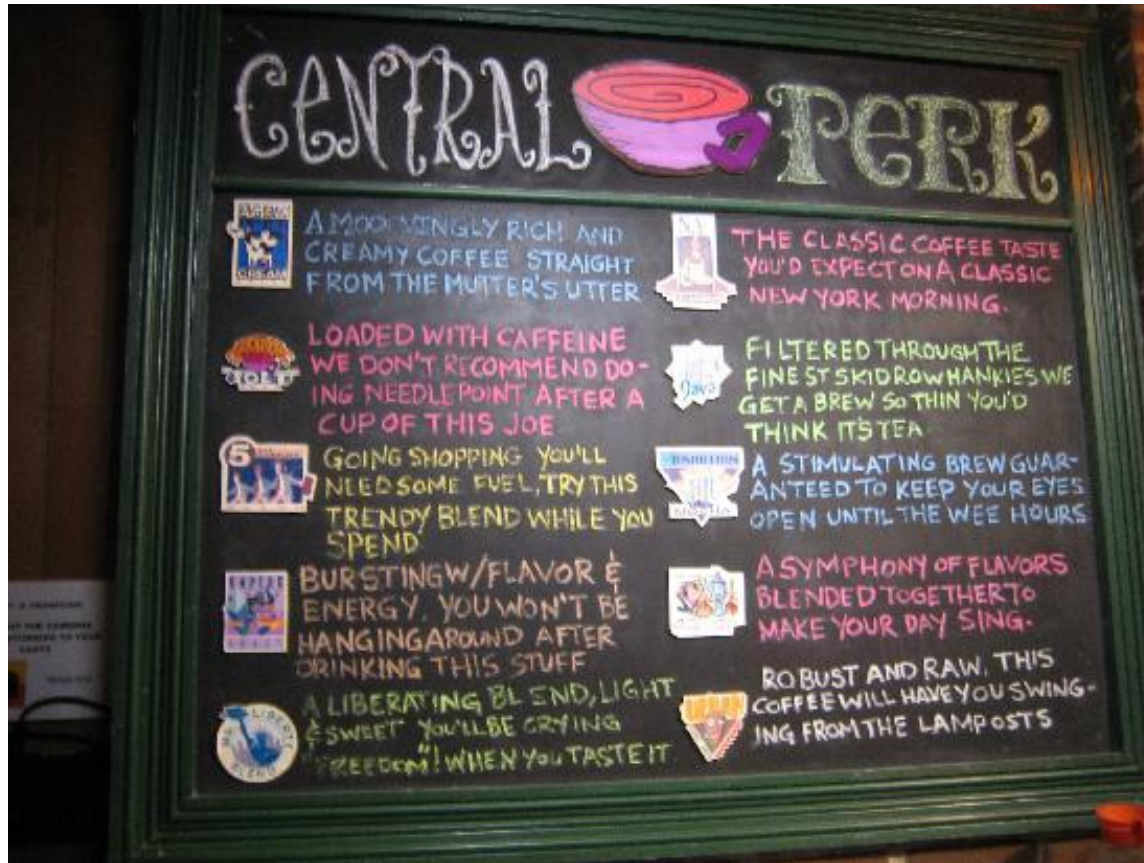 CENTRAL PERK
CREAM
A MOO'VINGLY RICH AND
CREAMY COFFEE STRAIGHT
FROM THE MUTTER'S UTTER
JOLT
LOADED WITH CAFFEINE
WE DON'T RECOMMEND DO-
ING NEEDLEPOINT AFTER A
CUP OF THIS JOE
5
GOING SHOPPING YOU'LL
NEED SOME FUEL, TRY THIS
TRENDY BLEND WHILE YOU
SPEND
BURSTING W/FLAVOR &
ENERGY, YOU WON'T BE
HANGING AROUND AFTER
DRINKING THIS STUFF
LIBERTY
BLEND
A LIBERATING BLEND, LIGHT
& SWEET YOU'LL BE CRYING
"FREEDOM"! WHEN YOU TASTE IT
N.Y.
THE CLASSIC COFFEE TASTE
YOU'D EXPECT ON A CLASSIC
NEW YORK MORNING.
Java
FILTERED THROUGH THE
FINEST SKID ROW HANKIES WE
GET A BREW SO THIN YOU'D
THINK IT'S TEA
A STIMULATING BREW GUAR-
ANTEED TO KEEP YOUR EYES
OPEN UNTIL THE WEE HOURS
A SYMPHONY OF FLAVORS
BLENDED TOGETHER TO
MAKE YOUR DAY SING.
ROBUST AND RAW, THIS
COFFEE WILL HAVE YOU SWING-
ING FROM THE LAMPOSTS